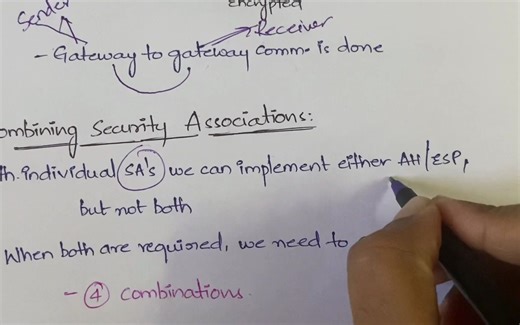 Sender
Encrypted
Receiver
- Gateway to gateway comm. is done
ombining Security Associations:
th. individual SA's we can implement either AH/ESP,
but not both
When both are required, we need to
- 4 combinations.